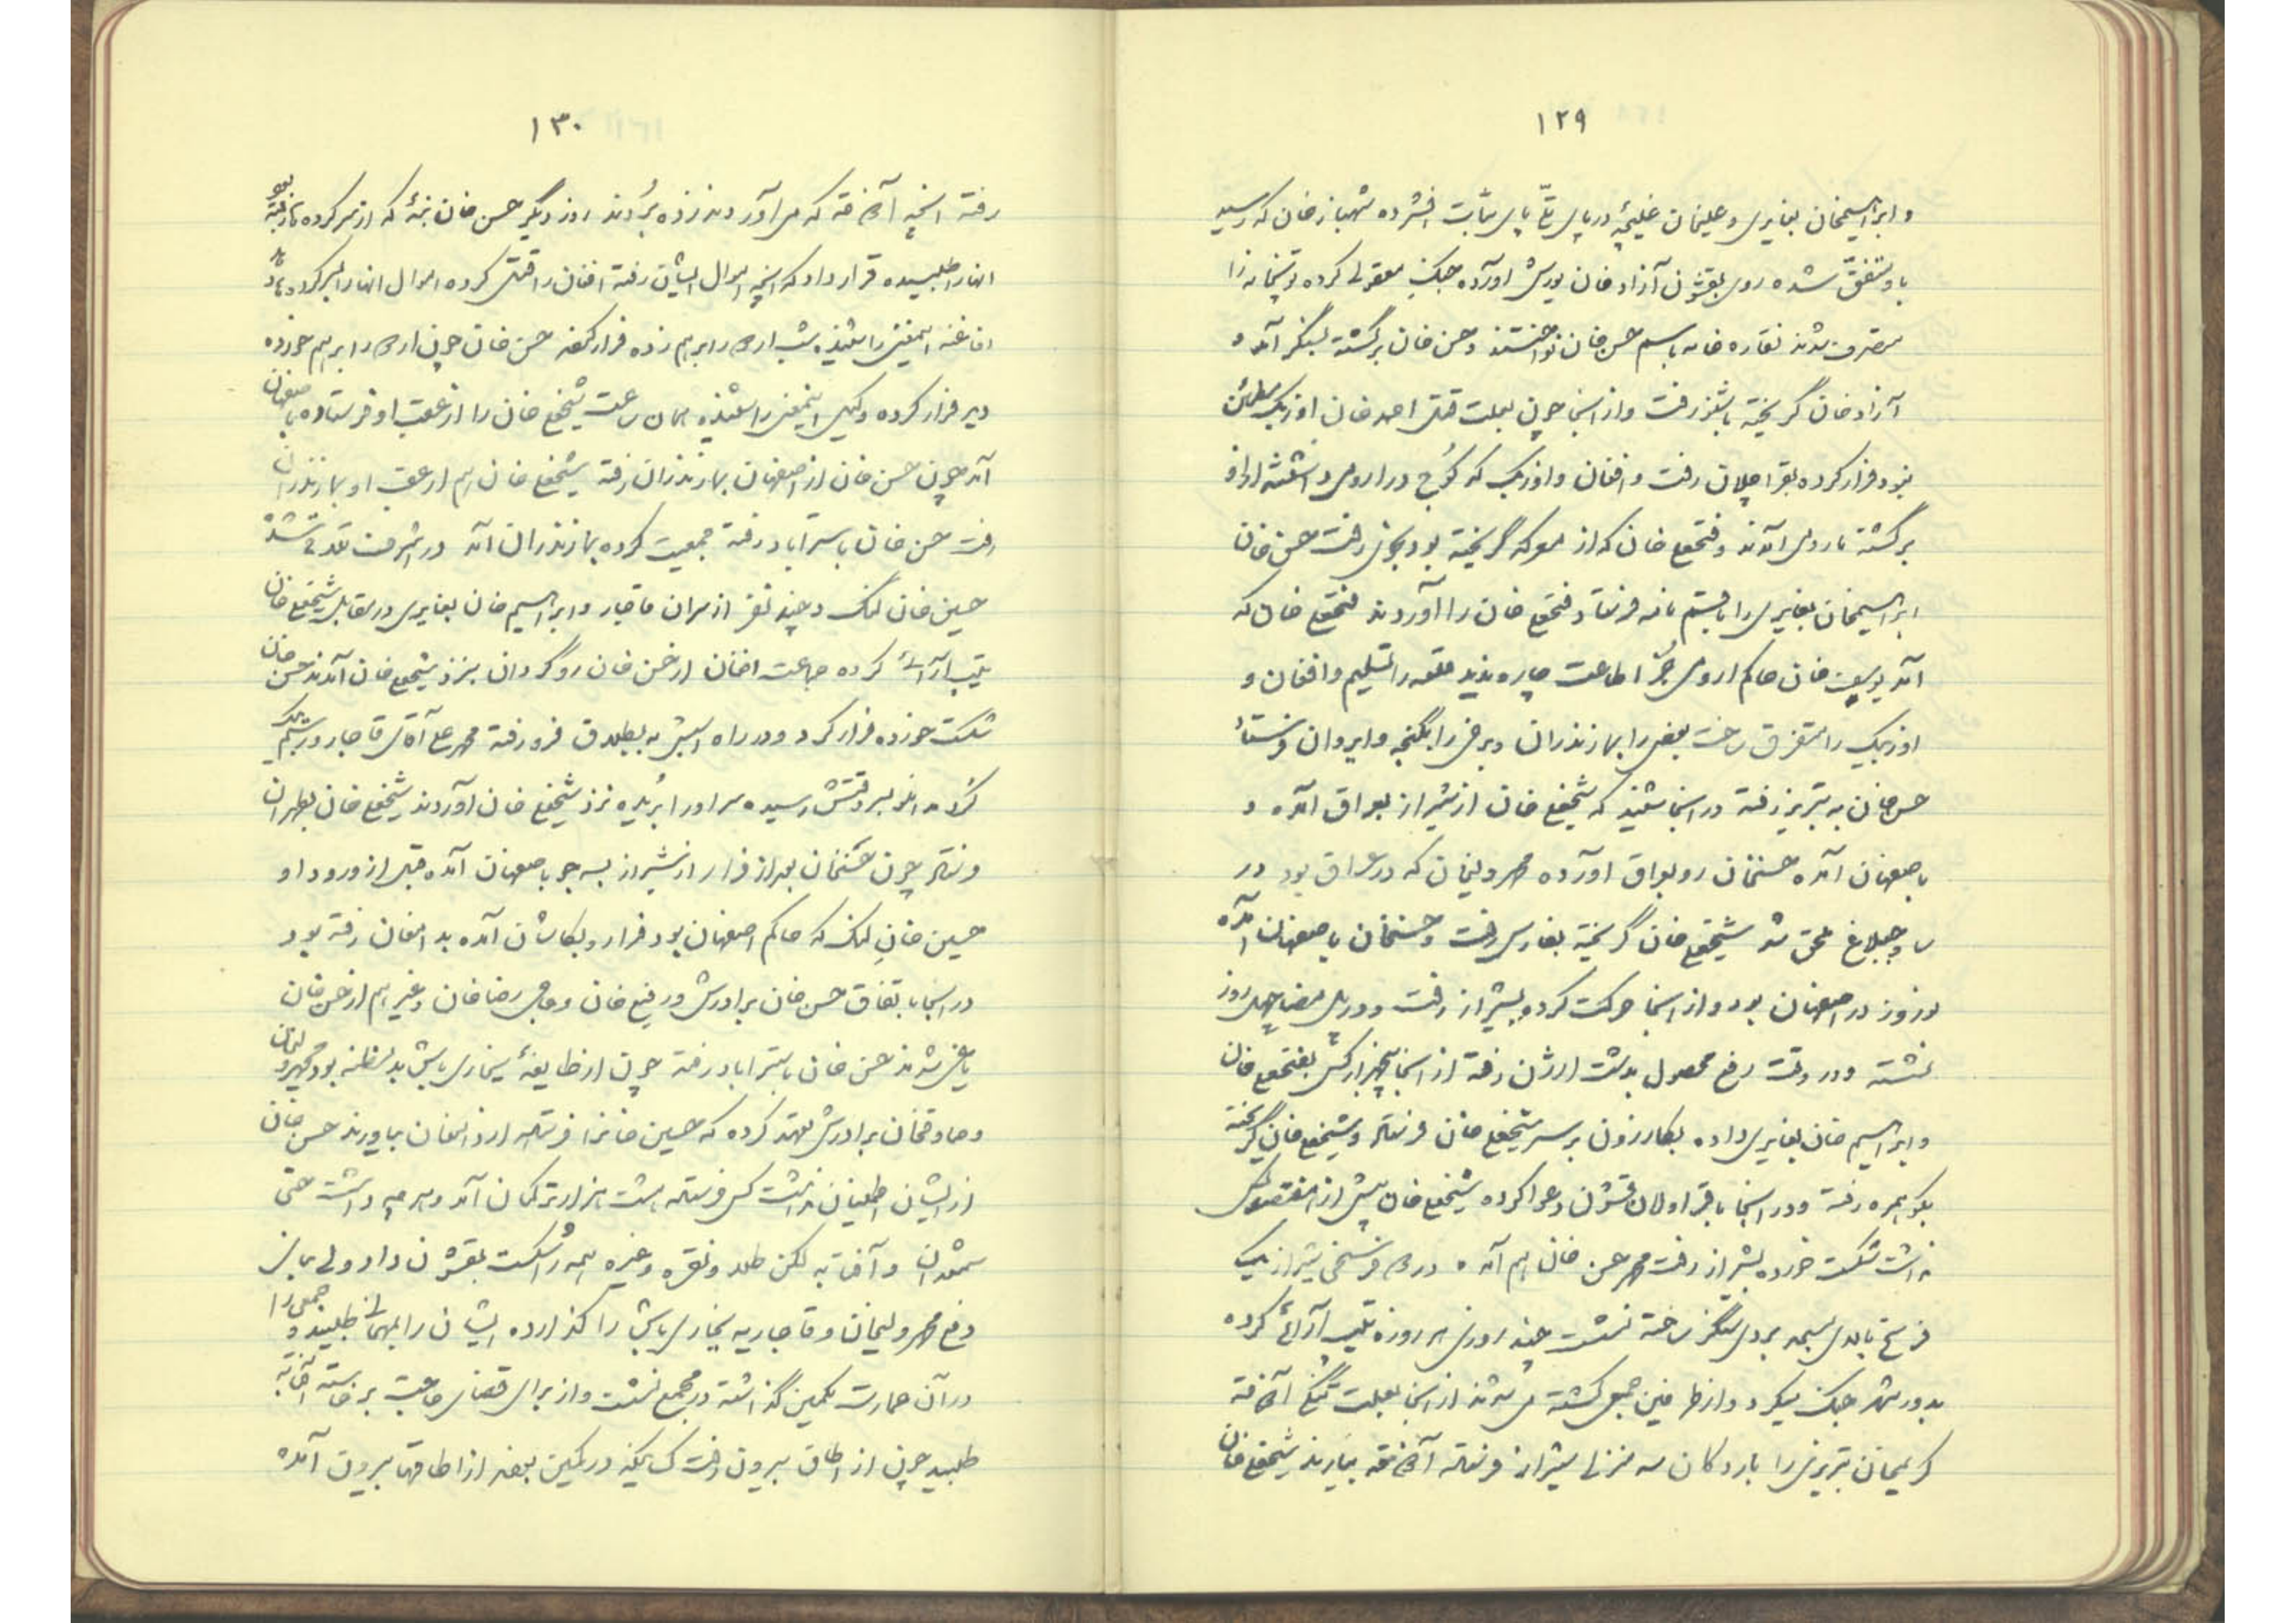 ۱۲۹
و ابراهیمخان بغایری و علیخان خلیجه در پای تلّ پای ثابت افشرده شهباز خان که رسید
با و متفق شده روی بقشون آزاد خان یورش آورده جنگ معقولی کرده توپخانه را
متصرف شدند نقاره خانه باسم حسن خان نواختند و حسن خان برگشته بسنگر آمد و
آزاد خان گریخته رفت و از آنجا چون بعلت قتل احمد خان اوزبک مطمئن
نبود فرار کرده رفت و افغان و اوزبک که کوچ در ارومی داشتند از او
برگشته باردوی آمدند و فتحعلی خان که از معرکه گریخته بود رفت حسن خان
ابراهیمخان بغایری را با قسم نامه فرستاد فتحعلی خان را آوردند فتحعلی خان که
آمد یوسف خان حاکم ارومی جز اطاعت چاره ندید قلعه را تسلیم و افغان و
اوزبک را متفرق ساخت بعضی را بمازندران و برخی را بگنجه و ایروان فرستاد
حسن خان به تبریز رفته در آنجا شنید که شیخعلی خان از شیراز بعراق آمده و
باصفهان آمده حسنخان رو بعراق آورده محمد ولیخان که در عراق بود در
ساوجبلاغ ملحق شد شیخعلی خان گریخته بفارس رفت و حسنخان باصفهان آمده
روز در اصفهان بود و از آنجا حرکت کرده بشیراز رفت و در چهل روز
نشسته و در وقت رفع محصول بدشت ارژن رفته از آنجا هزار کس بفتحعلی خان
و ابراهیم خان بغایری داده بکازرون بر سر شیخعلی خان فرستاد و شیخعلی خان گریخته
بکوهمره رفته و در آنجا با قراولان قشون دعوا کرده شیخعلی خان بیش از
نداشت شکست خورده بشیراز رفت محمد حسن خان هم آمده در فرسخی شیراز یک
فرسخ بالای سنگر ساخته نشست چند روزی هر روزه تیپ آرائی کرده
بدور شهر جنگ میکرد و از طرفین جمعی کشته می شدند از آنجا بعلت تنگی آذوقه
کریمخان تبریزی را باردکان سه منزلی شیراز فرستاد آذوقه بیارند شیخعلی خان
۱۳۰
رفته آنچه آذوقه که می آوردند زده بُردند روز دیگر حسن خان که از سرکرده
آنها را طلبیده قرار داد که آنچه اموال ایشان رفته افغان را قتل کرده اموال آنها را
افاغنه اینمعنی را شنیده شب اردو را برهم زده فرار کردند حسن خان چون اردو را برهم خورده
دید فرار کرده وکیل اینمعنی را شنیده همان ساعت شیخعلی خان را از عقب او فرستاده باصفهان
آمد چون حسن خان از اصفهان بمازندران رفته شیخعلی خان هم از عقب او بمازندران
رفت حسن خان باسترآباد رفته جمعیت کرده بمازندران آمد در اشرف تلاقی شد
حسین خان لنگ و چند نفر از سران قاجار و ابراهیم خان بغایری در مقابل شیخعلی خان
تیپ آرائی کرده جماعت افغان از حسن خان روگردان بنزد شیخعلی خان آمدند حسن خان
شکست خورده فرار کرد و در راه اسبش به باطلاق فرو رفته محمد علی آقای قاجار
بر وقتش رسیده سر او را بُریده نزد شیخعلی خان آوردند شیخعلی خان بطهران
فرستاد چون حسنخان بعد از فرار از شیراز باصفهان آمده قبل از ورود او
حسین خان لنگ که حاکم اصفهان بود فرار و بکاشان آمده بدامغان رفته بود
در آنجا باتفاق حسن خان برادرش و رفیع خان و حاجی رضا خان و غیرهم از حسن خان
یاغی شدند حسن خان باسترآباد رفته چون از طایفهٔ یخاری باش بدمظنه بود محمد ولیخان
و صادقخان برادرش تعهد کرده که حسین خان را فرستاده از دامغان بیاورند حسن خان
از ایشان اطمینان نداشت کس فرستاده هشت هزار ترکمان آمد و هر چه داشت حتی
شمعدان و آفتابه لگن طلا و نقره و غیره همه را شکست بقشون داد
دفع محمد ولیخان و قاجاریه یخاری باش را گذارده ایشان را بمهمانی طلبید و جمعی را
در آن عمارت بکمین گذاشته در مجمع نشست و از برای قضای حاجت برخاسته آفتابه
طلبید چون از اطاق بیرون رفت کسانیکه در کمین بودند از اطاقها بیرون آمده